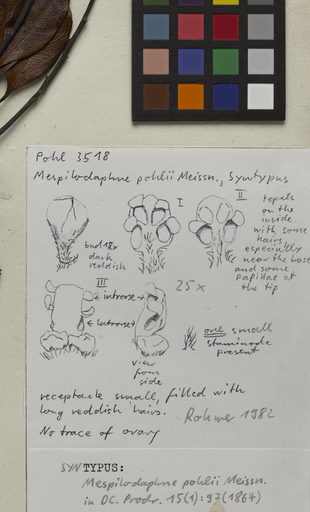 Pohl 3518
Mespilodaphne pohlii Meissn., Syntypus
I
II
tepals
on the
inside
with some
hairs
especially
near the base
and some
papillae at
the tip
bud 18x
dark
reddish
III
introrse
latrorse
25 x
view
from
side
one small
staminode
present
receptacle small, filled with
long reddish hairs.
Rohwer 1982
No trace of ovary
SYNTYPUS:
Mespilodaphne pohlii Meissn.
in DC. Prodr. 15(1):97(1864)